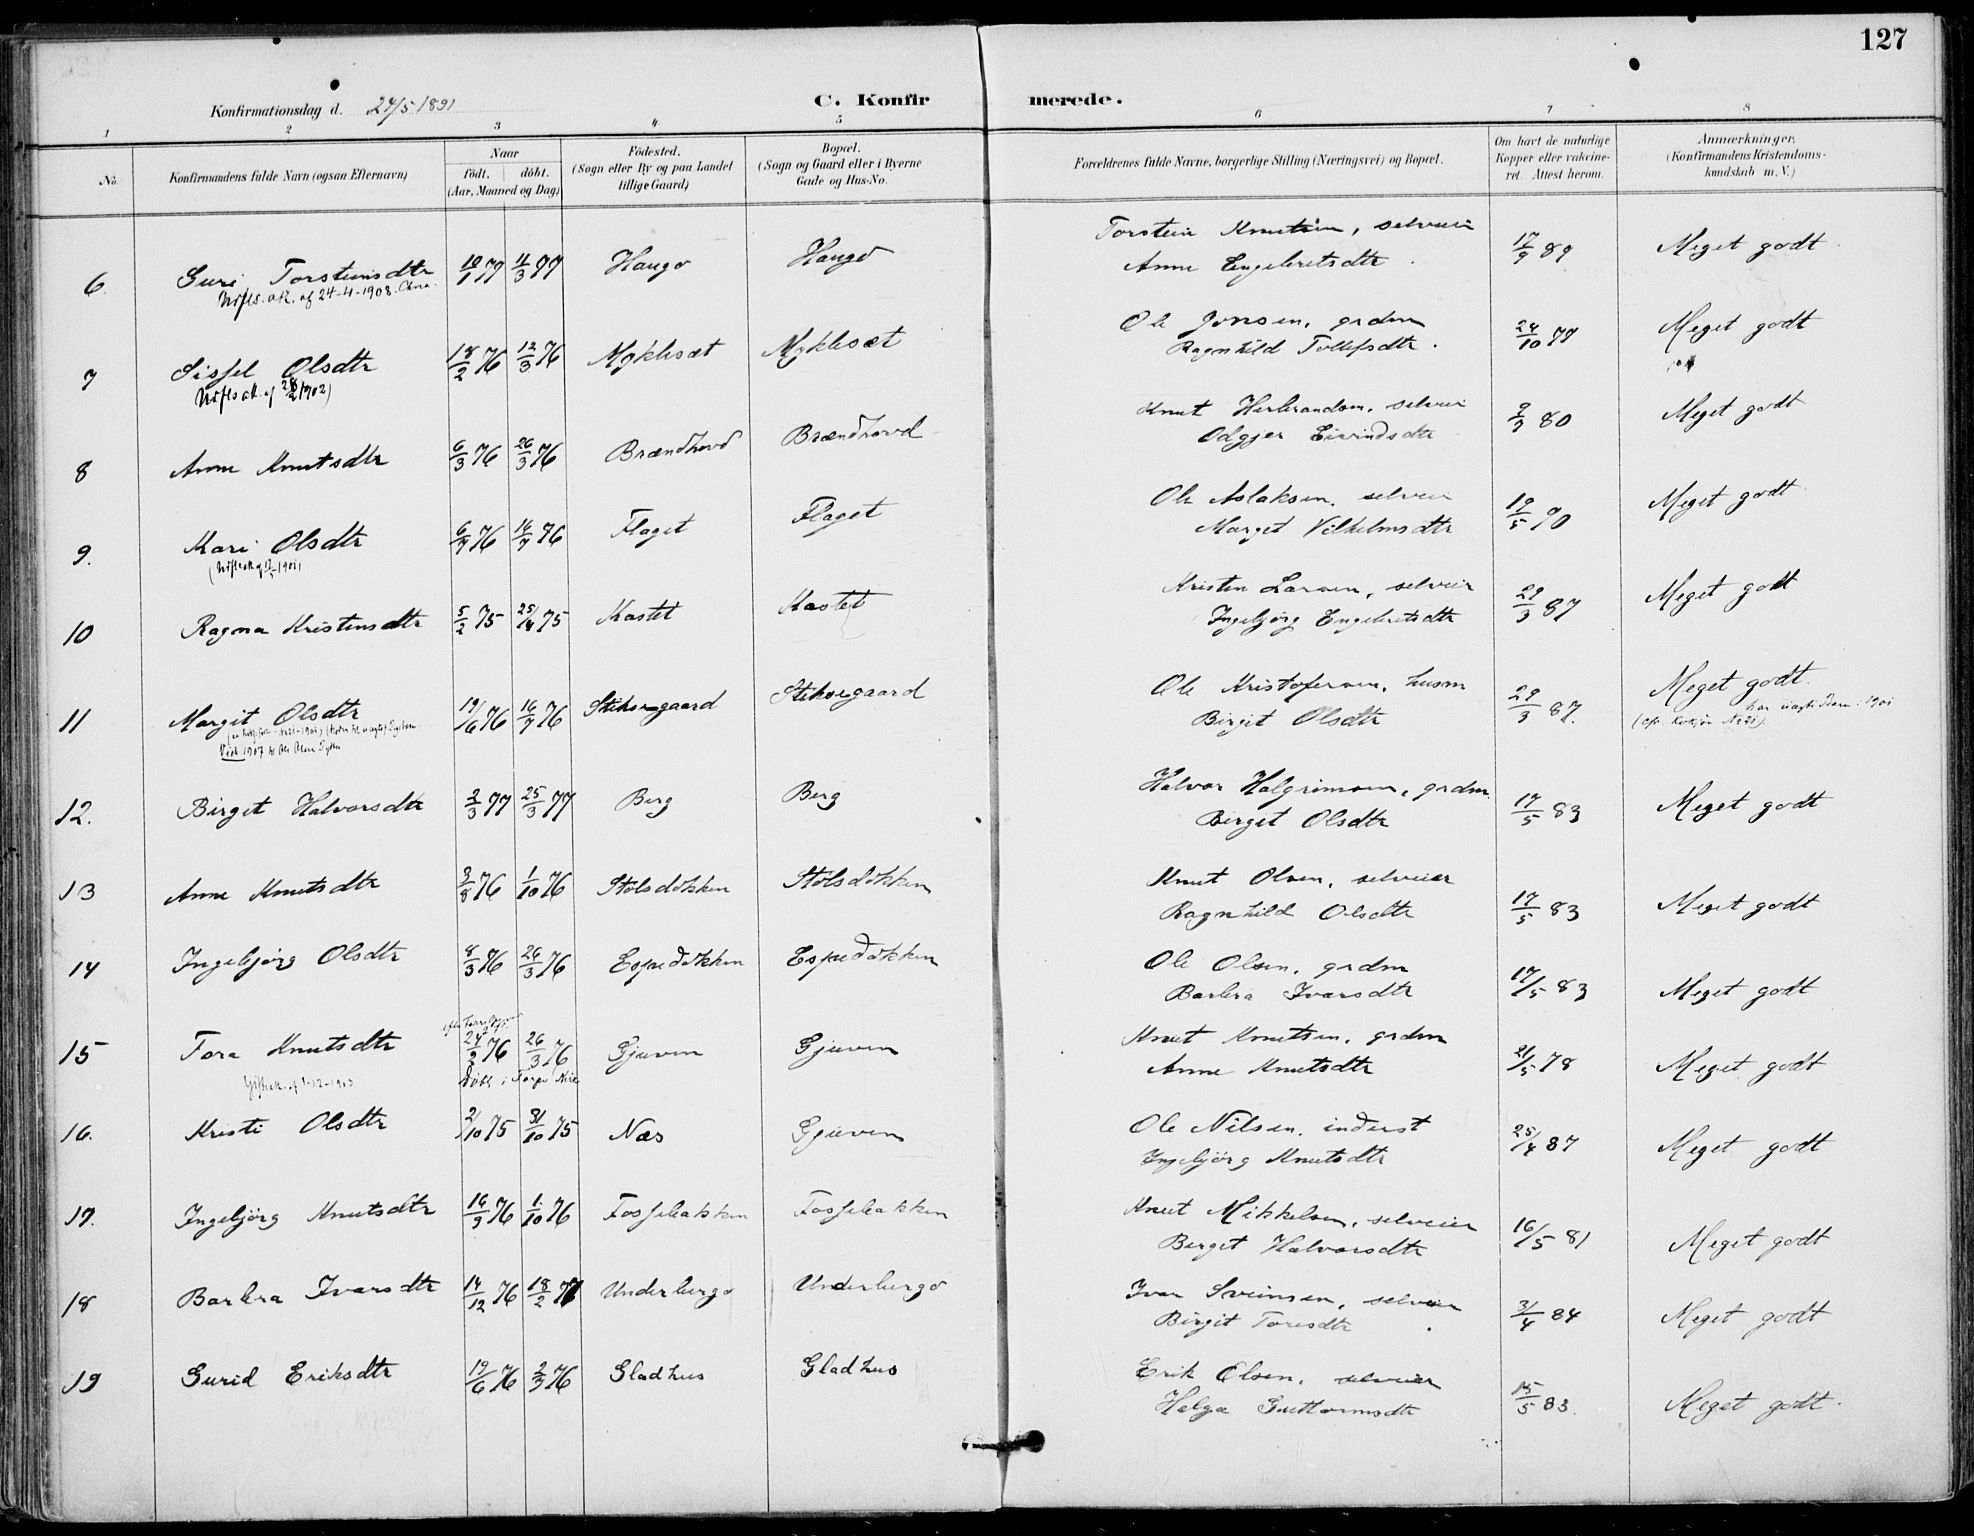 127
Konfirmationsdag d. 24/5 1891
C. Konfirmerede.
1 2 3 4 5 6 7 8
No. Konfirmandens fulde Navn (ogsaa Efternavn) Naar født. døbt. (Aar, Maaned og Dag) Fødested. (Sogn eller By og paa Landet tillige Gaard) Bopæl. (Sogn og Gaard eller i Byerne Gade og Hus-No. Forældrenes fulde Navne, borgerlige Stilling (Næringsvei) og Bopæl. Om havt de naturlige Kopper eller vakcineret. Attest herom. Anmærkninger. (Konfirmandens Kristendomskundskab m. V.)
6. Guri Torsteinsdtr 10/1 77 11/3 77 Haugo Haugo Torstein Knutsen, selveier 17/9 89 Meget godt
af 24-4-1908
Anne Engebretsdtr
7 Sissel Olsdtr 18/2 76 12/3 76 Myklesæt Myklesæt Ole Jonsen, grdm 24/10 77 Meget godt
28/2 1902)
Ragnhild Tollefsdtr.
8 Anne Knutsdtr 6/3 76 26/3 76 Brændhovd Brændhovd Knut Herbrandsn, selveier 2/3 80 Meget godt
Odgjer Eivindsdtr
9. Mari Olsdtr 6/7 76 16/7 76 Flaget Flaget Ole Aslaksen, selveier 19/5 90 Meget godt
1901)
Marget Vilhelmsdtr
10 Ragna Kristensdtr 5/2 75 25/4 75 Kastet Kastet Kristen Larsen, selveier 29/3 87 Meget godt
Ingebjørg Engebretsdtr
11 Margit Olsdtr 19/6 76 16/7 76 Stiksrgaard Stiksrgaard Ole Kristofersen, husm 29/3 87. Meget godt.
1901
Viet 1907 til Ole Olsen
Birgit Olsdtr
12. Birget Halvorsdtr 2/3 77 25/3 77 Berg Berg Halvor Halgrimsen, grdm. 17/5 83 Meget godt
Birget Olsdtr
13 Anne Knutsdtr 3/8 76 1/10 76 Stølsdøkken Stølsdøkken Knut Olsen, selveier 17/5 83 Meget godt
Ragnhild Olsdtr
14 Ingebjørg Olsdtr 8/3 76 26/3 76 Espedøkken Espedøkken Ole Olsen, grdm 17/5 83 Meget godt
Barbra Ivarsdtr
15 Tora Knutsdtr 24/2 76 26/3 76 Gjuven Gjuven Knut Knutsen, grdm 21/5 78 Meget godt
af 1-12-1903 Døbt i Torpe Kirk
Anne Knutsdtr
16. Kristi Olsdtr 2/10 75 31/10 75 Næs Gjuven Ole Nilsen, inderst 25/4 87 Meget godt
Ingebjørg Knutsdtr
17. Ingebjørg Knutsdtr 16/9 76 1/10 76 Fossebakken Fossebakken Knut Mikkelsen, selveier 16/5 81 Meget godt
Berget Halvorsdtr
18 Barbra Ivarsdtr 14/12 76 18/2 77 Underbergo Underbergo Ivar Svinsen, selveier 3/4 84 Meget godt
Birgit Toresdtr
19 Gurid Eriksdtr 19/6 76 2/7 76 Gladhus Gladhus Erik Olsen, selveier 15/5 83. Meget godt.
Helga Guttormsdtr